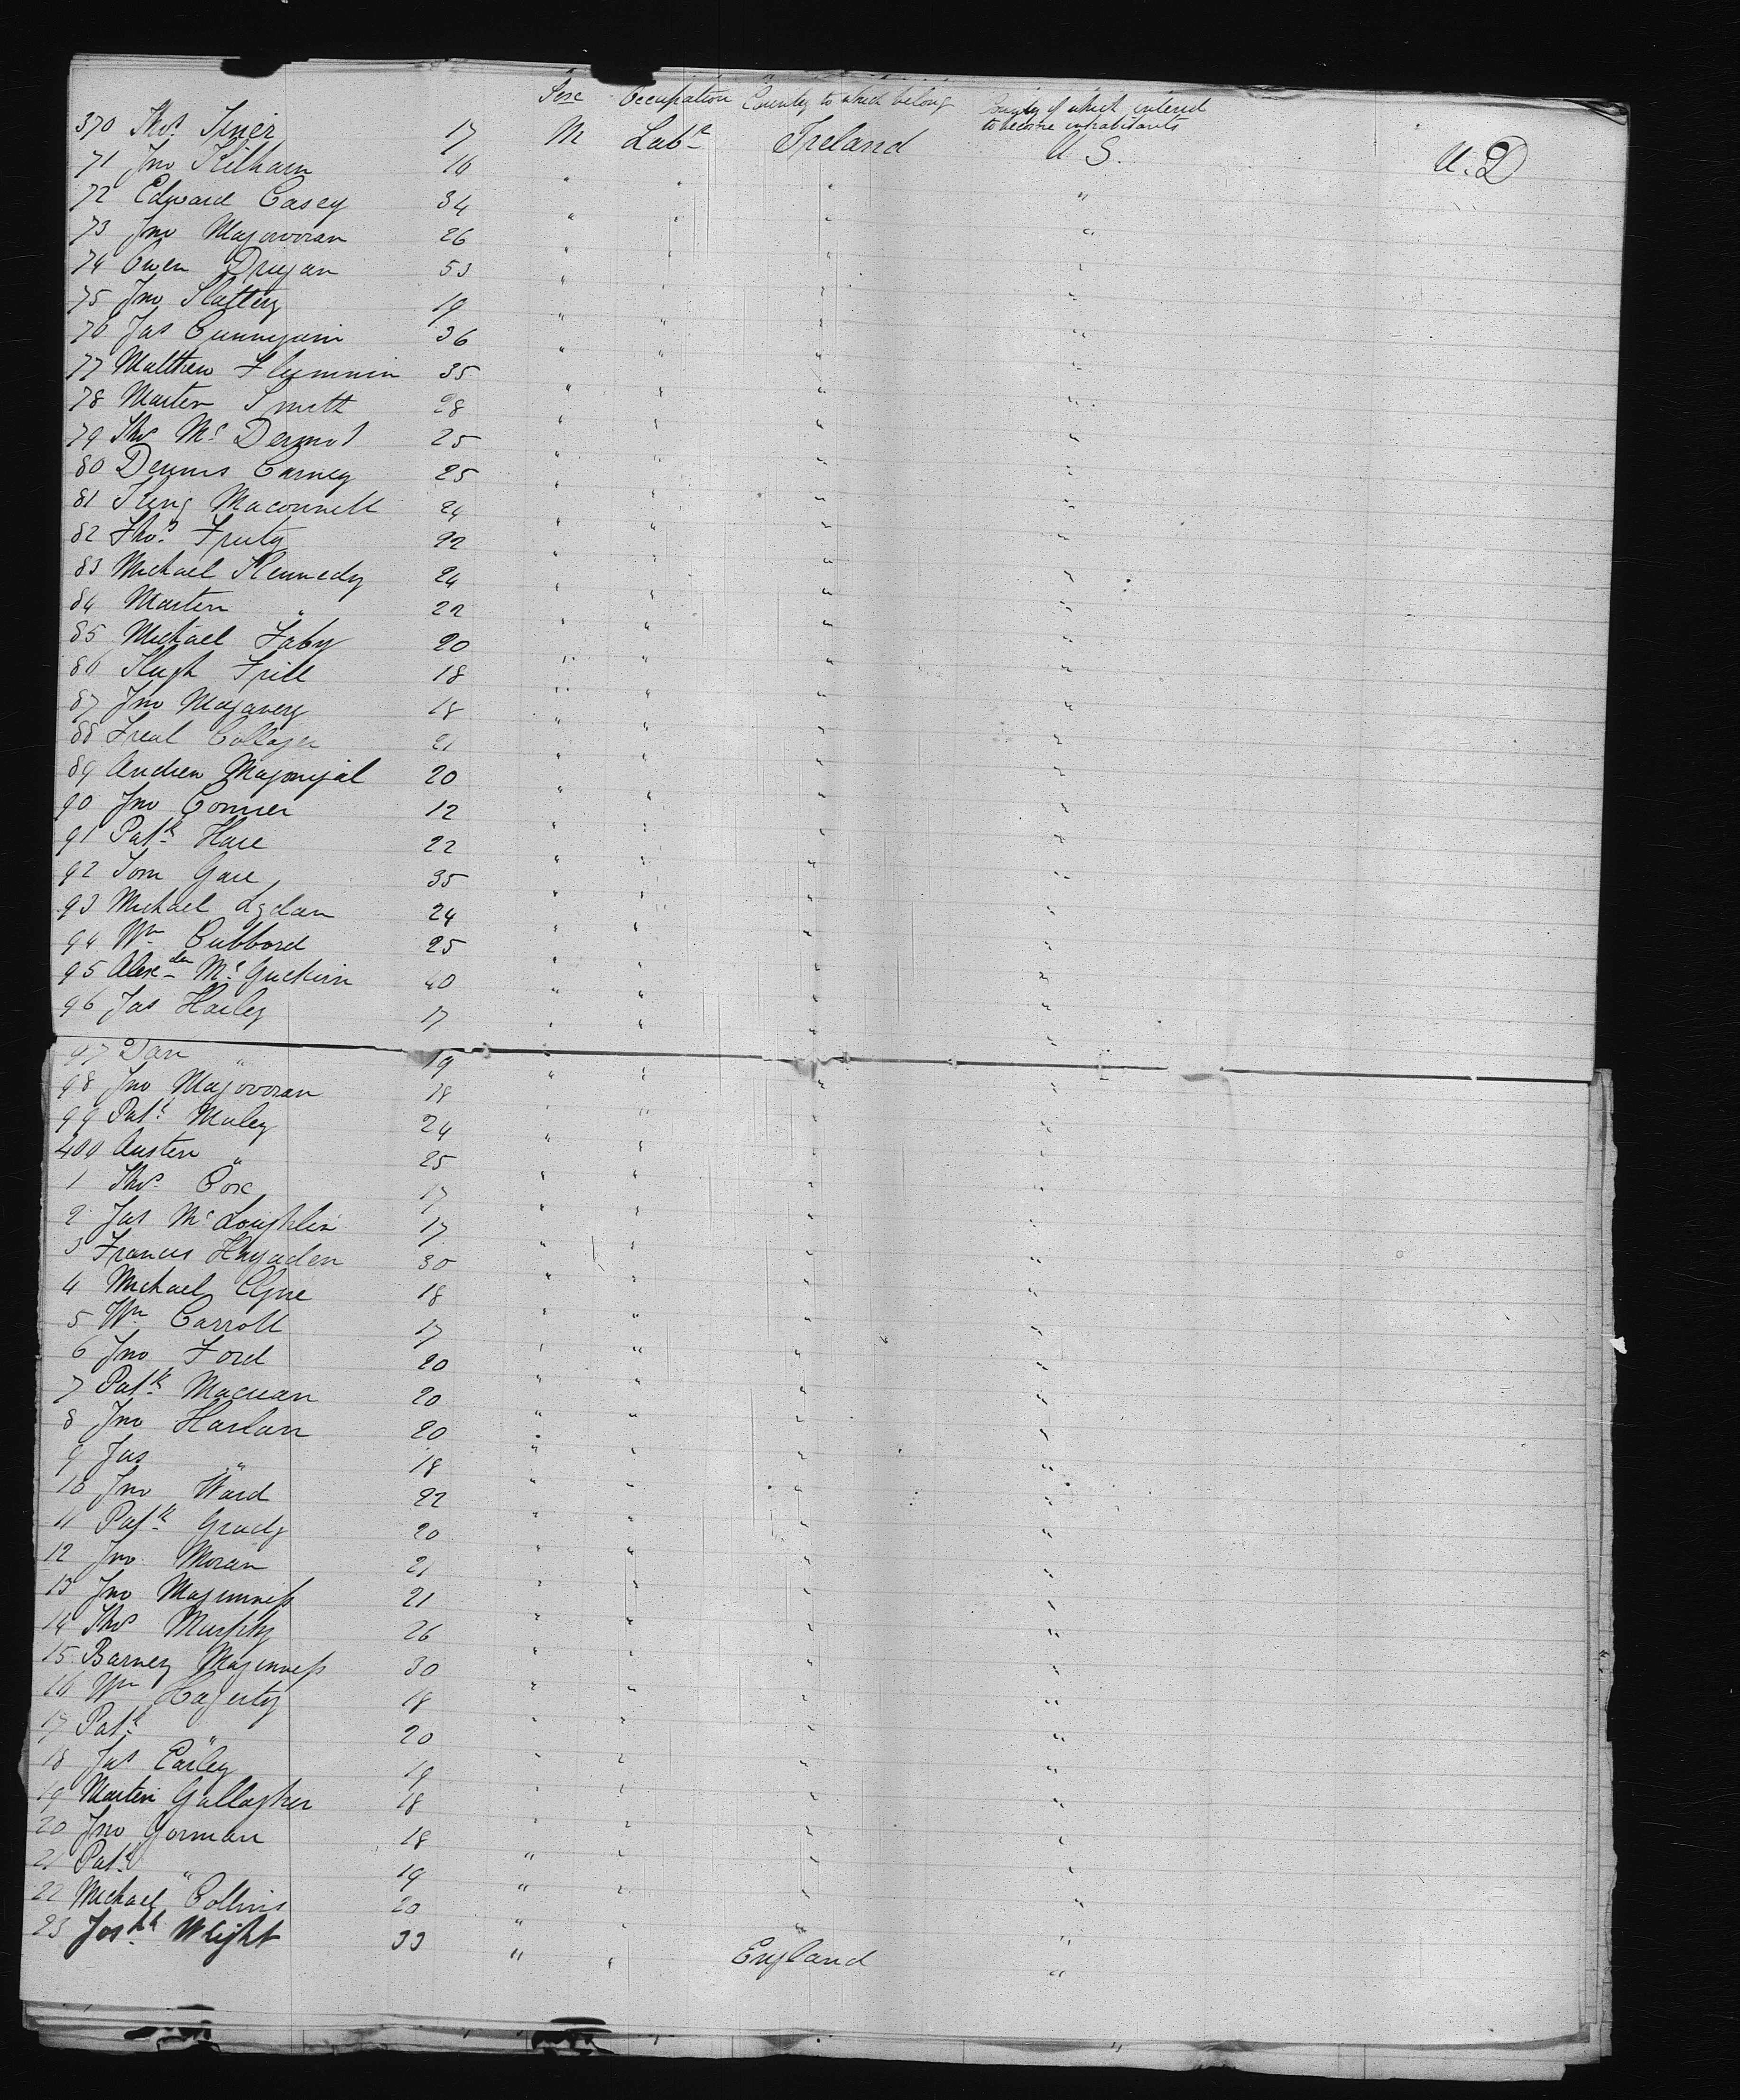 Sex Occupation Country to which belong Country of which intend to become inhabitants
370 Thos. 17 M Labr Ireland U S. U.D
71 Jno Kilham 16 " " " "
72 Edward Casey 34 " " " "
73 Jno Magovoran 26 " " " "
74 Owen Drugan 53 " " " "
75 Jno Slattery 19 " " " "
76 Jas Cunnyam 36 " " " "
77 Matthew Flymmin 35 " " " "
78 Marten Smith 28 " " " "
79 Thos Mc Dermot 25 " " " "
80 Dennis Carney 25 " " " "
81 King Maconnell 24 " " " "
82 Thos. 22 " " " "
83 Michael Kennedy 24 " " " "
84 Marten " 22 " " " "
85 Michael Faby 20 " " " "
86 Hugh Frill 18 " " " "
87 Jno Magavery 18 " " " "
88 21 " " " "
89 Andrew Magonigal 20 " " " "
90 Jno Conner 12 " " " "
91 Patk Hare 22 " " " "
92 Tom Gare 35 " " " "
93 Michael Lydan 24 " " " "
94 Wm Cubbord 25 " " " "
95 Alexder Mc Guckin 40 " " " "
96 Jas Harley 17 " " " "
97 Dan " 19 " " " "
98 Jno Magovoran 18 " " " "
99 Patk Maley 24 " " " "
400 Austen " 25 " " " "
1 Thos Cox 17 " " " "
2 Jas Mc Loughlin 17 " " " "
3 Francis Haysden 30 " " " "
4 Michael Clyne 18 " " " "
5 Wm Carroll 17 " " " "
6 Jno Ford 20 " " " "
7 Patk Macuan 20 " " " "
8 Jno Harlan 20 " " " "
9 Jas " 18 " " " "
10 Jno Ward 22 " " " "
11 Patk Grady 20 " " " "
12 Jno Moran 21 " " " "
13 Jno Magenness 21 " " " "
14 Thos Murphy 26 " " " "
15 Barney Magenness 30 " " " "
16 Wm Hagerty 18 " " " "
17 Patk " 20 " " " "
18 Jas Earley 19 " " " "
19 Martin Gallagher 18 " " " "
20 Jno Gorman 18 " " " "
21 Patk " 19 " " " "
22 Michael Collins 20 " " " "
23 Josph Wright 33 " " England "